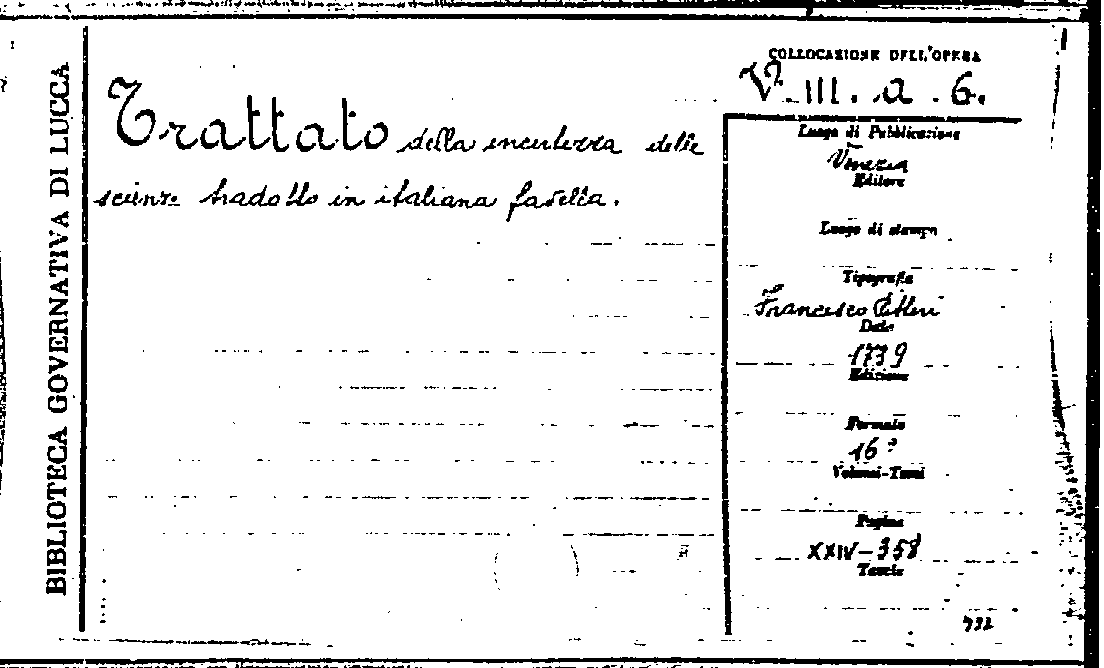 BIBLIOTECA GOVERNATIVA DI LUCCA
Trattato della incertezza delle
scienze tradotto in italiana favella.
COLLOCAZIONE DELL'OPERA
V. III. a. 6.
Luogo di Pubblicazione
Venezia
Editore
Luogo di stampa
Tipografia
Francesco Pitteri
Data
1739
Edizione
Formato
16º
Volumi-Tomi
Pagine
XXIV-358
Tavole
732